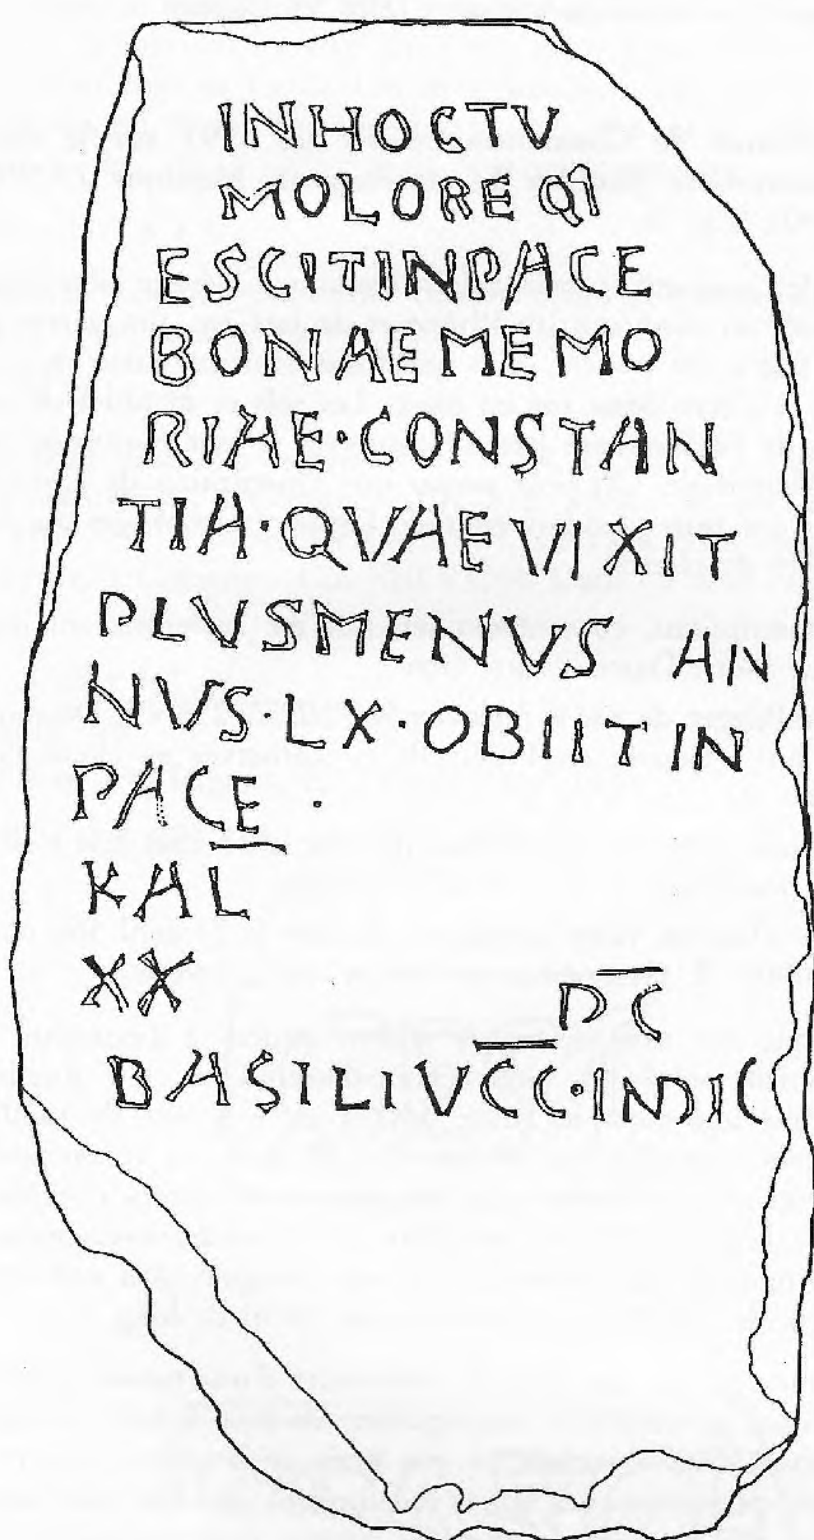 INHOCTV
MOLOREQI
ESCITINPACE
BONAEMEMO
RIAE·CONSTAN
TIA·QVAEVIXIT
PLVSMENVS AN
NVSLX·OBIITIN
PACE·
KAL
XX PC
BASILIVCC·INDIC